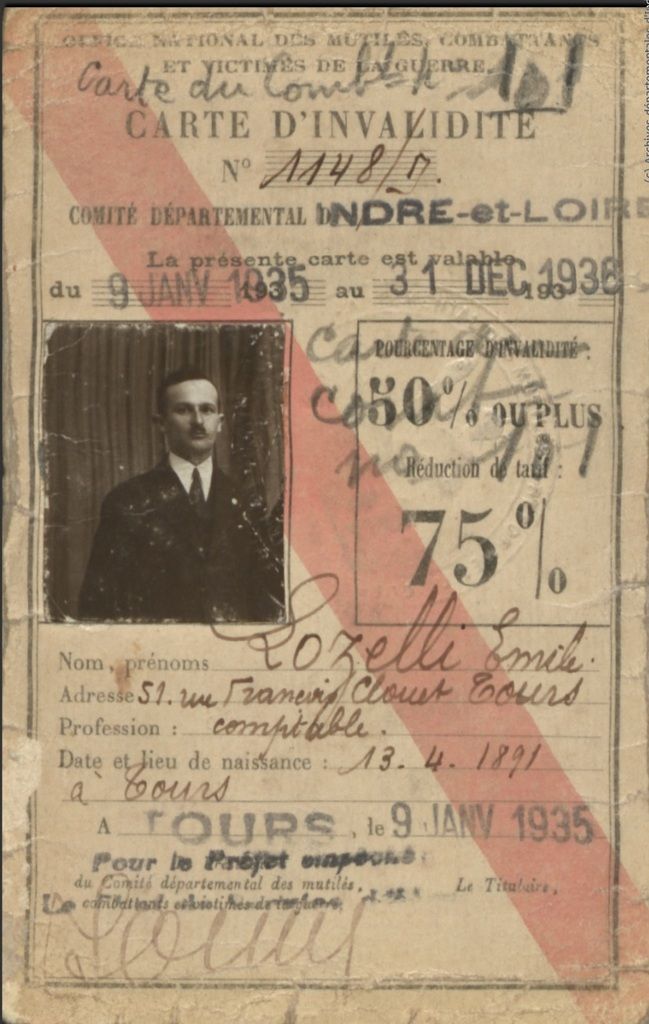 OFFICE NATIONAL DES MUTILÉS, COMBATTANTS
ET VICTIMES DE LA GUERRE
Carte du Comb
CARTE D'INVALIDITÉ
N° 1148/
COMITÉ DÉPARTEMENTAL D'INDRE-et-LOIRE
La présente carte est valable
du 9 JANV 1935 au 31 DEC 1936
POURCENTAGE D'INVALIDITÉ :
50% OU PLUS
Réduction de tarif :
75%
Nom, prénoms Lozelli Emile.
Adresse 51. rue François Clouet Tours
Profession : comptable.
Date et lieu de naissance : 13. 4. 1891
à Tours
A TOURS, le 9 JANV 1935
Pour le Préfet empêché
du Comité départemental des mutilés, Le Titulaire,
combattants et victimes de la guerre,
(c) Archives départementales d'